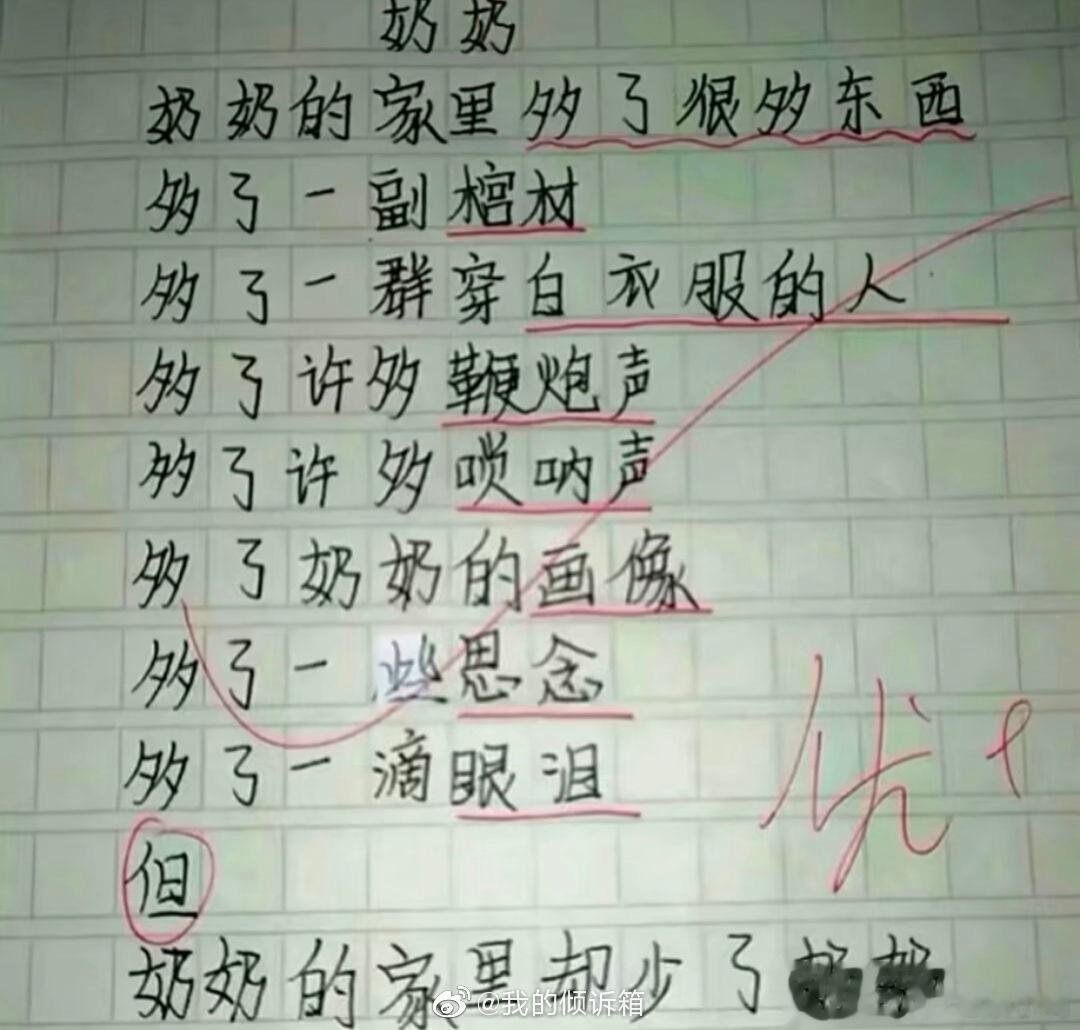 奶奶
奶奶的家里多了很多东西
多了一副棺材
多了一群穿白衣服的人
多了许多鞭炮声
多了许多唢呐声
多了奶奶的画像
多了一些思念
多了一滴眼泪
优+
但
奶奶的家里却少了奶奶
@我的倾诉箱